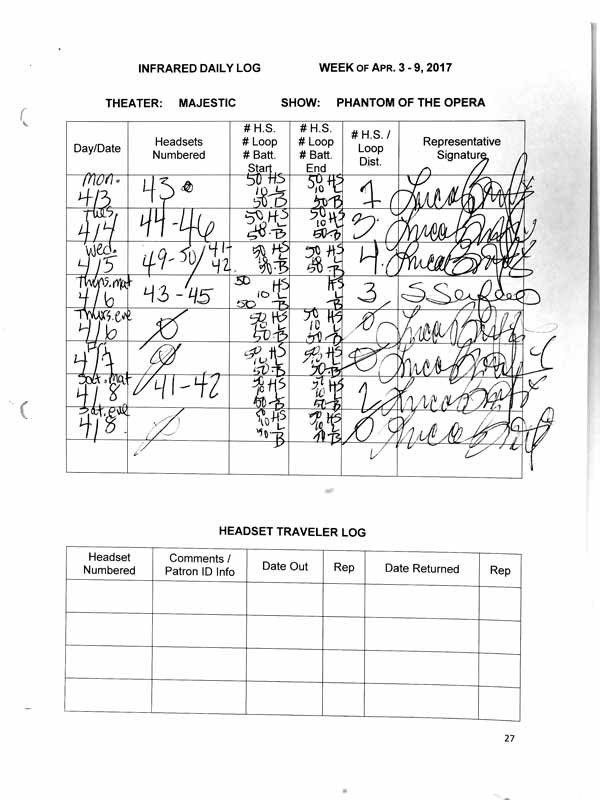 INFRARED DAILY LOG WEEK OF APR. 3 - 9, 2017
THEATER: MAJESTIC SHOW: PHANTOM OF THE OPERA
Day/Date Headsets Numbered # H.S. # Loop # Batt. Start # H.S. # Loop # Batt. End # H.S. / Loop Dist. Representative Signature
Mon. 4/3 43 50 HS 10 L 50 B 50 HS 10 L 50 B 1
Tues 4/4 44-46 50 HS 10 L 50 B 50 HS 10 L 50 B 3
Wed. 4/5 49-50/41-42 50 HS 10 L 50 B 50 HS 10 L 50 B 4
Thurs. mat 4/6 43-45 50 HS 10 L 50 B HS L B 3
Thurs. eve 4/6 0 50 HS 10 L 50 B 50 HS 10 L 50 B 0
4/7 0 50 HS 10 L 50 B 50 HS 10 L 50 B 0
Sat. mat 4/8 41-42 50 HS 10 L 50 B 50 HS 10 L 50 B 2
Sat. eve 4/8 0 50 HS 10 L 50 HS 10 L B 0
HEADSET TRAVELER LOG
Headset Numbered Comments / Patron ID Info Date Out Rep Date Returned Rep
27